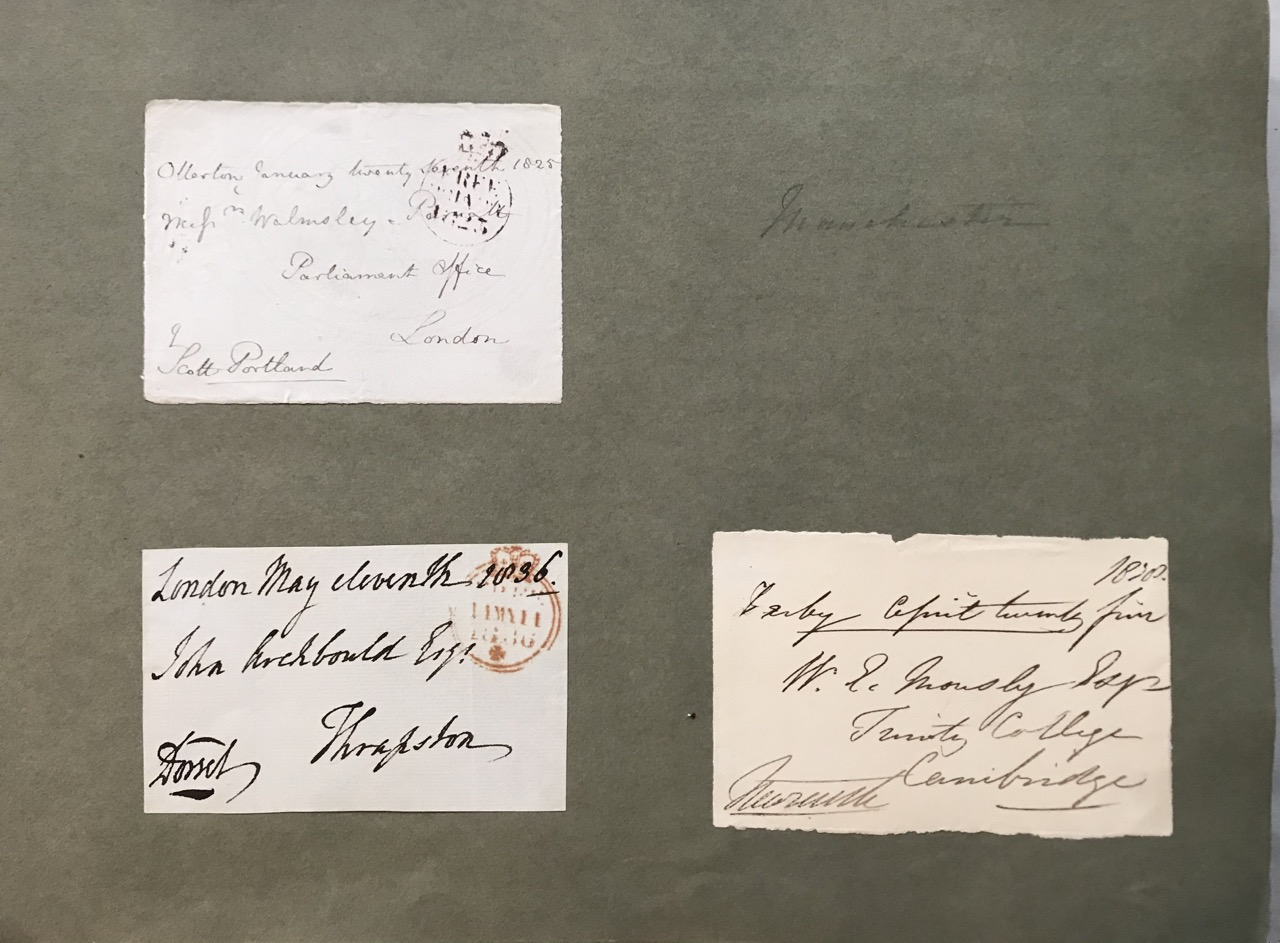 Ollerton January twenty seventh 1825
Messrs Walmsley &
Parliament Office
London
Scott Portland
FREE
1825
Manchester
London May eleventh 1836.
John Archbould Esqr.
Thrapston
Dorset
11MY11
1836
1838.
April twenty five
W. E. Mously Esqr
Trinity College
Cambridge